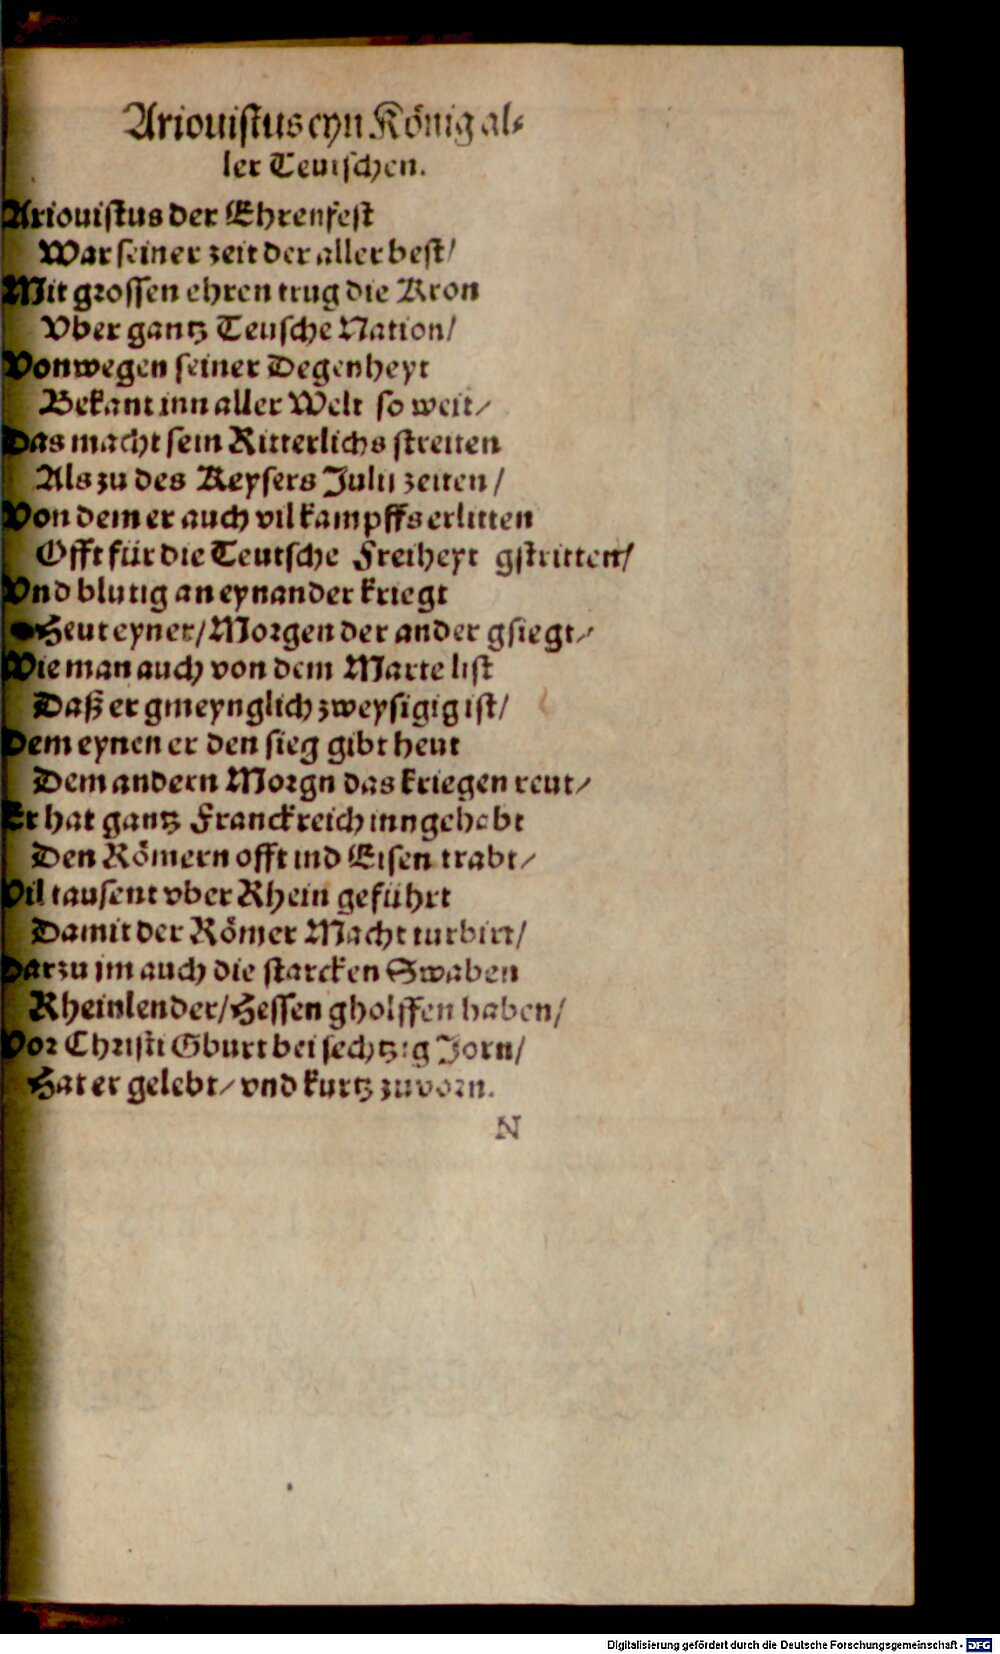 Ariouistus eyn König al-
ler Teutschen.
Ariouistus der Ehrenfest
War seiner zeit der aller best/
Mit grossen ehren trug die Kron
Vber gantz Teusche Nation/
Vonwegen seiner Degenheyt
Bekant inn aller Welt so weit/
Das macht sein Ritterlichs streiten
Als zu des Keysers Julij zeiten/
Von dem er auch vil kampffs erlitten
Offt für die Teutsche Freiheyt gstritten/
Vnd blutig an eynander kriegt
Heut eyner/Morgen der ander gsiegt/
Wie man auch von dem Marte list
Daß er gmeynglich zweysigig ist/
Dem eynen er den sieg gibt heut
Dem andern Morgn das kriegen reut/
Er hat gantz Franckreich inngehabt
Den Römern offt ind Eisen trabt/
Vil tausent vber Rhein geführt
Damit der Römer Macht turbirt/
Darzu jm auch die starcken Swaben
Rheinlender/Hessen gholffen haben/
Vor Christi Gburt bei sechtzig Jorn/
Hat er gelebt/vnd kurtz zuvorn.
N
Digitalisierung gefördert durch die Deutsche Forschungsgemeinschaft - DFG